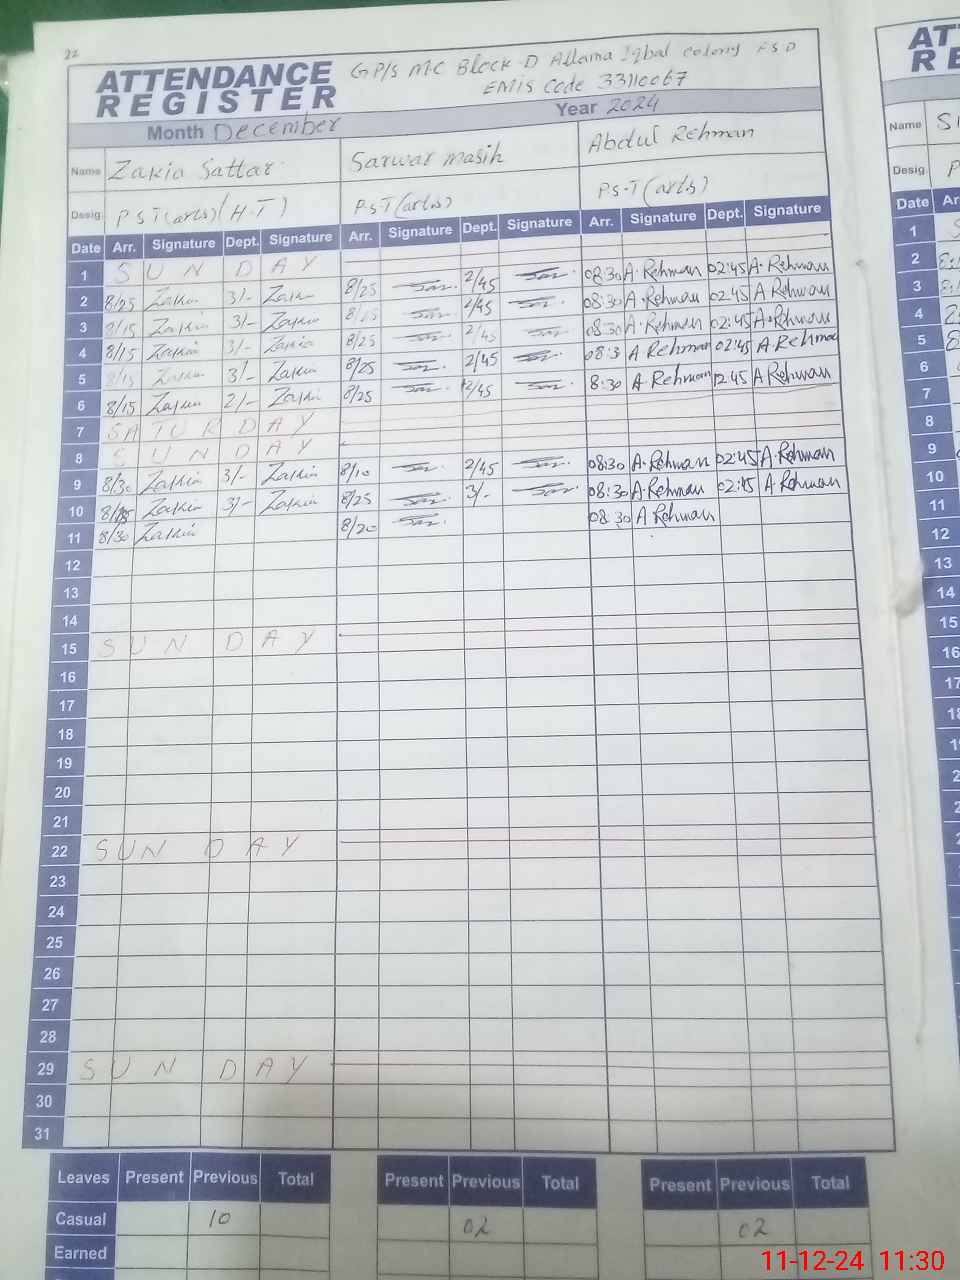 22
ATTENDANCE REGISTER
GP/S MC Block D Allama Iqbal Colony FSD
EMIS Code 33110067
Month December Year 2024
Name Zakia Sattar Sarwar masih Abdul Rehman
Desig. PST(arts)(H.T) P.S.T(arts) P.S.T(arts)
Date Arr. Signature Dept. Signature Arr. Signature Dept. Signature Arr. Signature Dept. Signature
1 SUNDAY
2 8/25 Zakia 3/- Zakia 8/25 2/45 08:30 A.Rehman 02:45 A.Rehman
3 8/15 Zakia 3/- Zakia 8/25 2/45 08:30 A.Rehman 02:45 A Rehman
4 8/15 Zakia 3/- Zakia 8/25 2/45 08:30 A.Rehman 02:45 A.Rehman
5 8/15 Zakia 3/- Zakia 8/25 2/45 08:3 A Rehman 02:45 A.Rehman
6 8/15 Zakia 2/- Zakia 8/25 2/45 8:30 A Rehman 12:45 A Rehman
7 SATURDAY
8 SUNDAY
9 8/30 Zakia 3/- Zakia 8/10 2/45 08:30 A.Rehman 02:45 A.Rehman
10 Zakia 3/- Zakia 8/25 3/- 08:30 A.Rehman 02:45 A Rehman
11 8/30 Zakia 8/20 08:30 A Rehman
12
13
14
15 SUNDAY
16
17
18
19
20
21
22 SUNDAY
23
24
25
26
27
28
29 SUNDAY
30
31
Leaves Present Previous Total Present Previous Total Present Previous Total
Casual 10 02 02
Earned
AT
RE
Name
Desig.
Date Ar
1
2
3
4
5
6
7
8
9
10
11
12
13
14
15
16
17
18
11-12-24 11:30